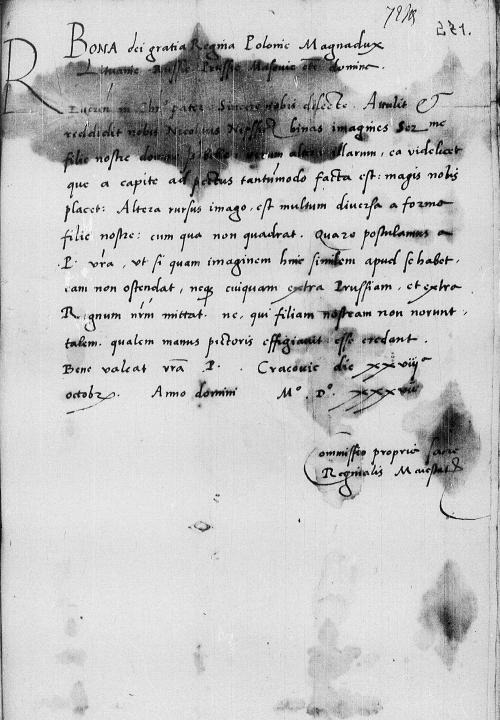 271.
BONA dei gratia Regina Polonie Magnadux
Lituanie Russie Prussie Masovie etc domine.
R in Chr pater Sincere nobis dilecte. Attulit et
reddidit nobis Nicolaus Nipssicz binas imagines Ser me
filie nostre domine Isabelle quarum altera illarum, ea videlicet
que a capite ad pectus tantummodo facta est: magis nobis
placet: Altera rursus imago, est multum diversa a forma
filie nostre: cum qua non quadrat. Quare postulamus a
P. vra, ut si quam imaginem huic similem apud se habet,
eam non ostendat, neq cuiquam extra Prussiam, et extra
Regnum nrm mittat. ne, qui filiam nostram non norunt,
talem, qualem manus pictoris effigiavit esse credant.
Bene valeat vra P. Cracovie die xxviij
octobr. Anno domini M° D° xxxvij
Commissio propria sacre
Reginalis Maiestatis